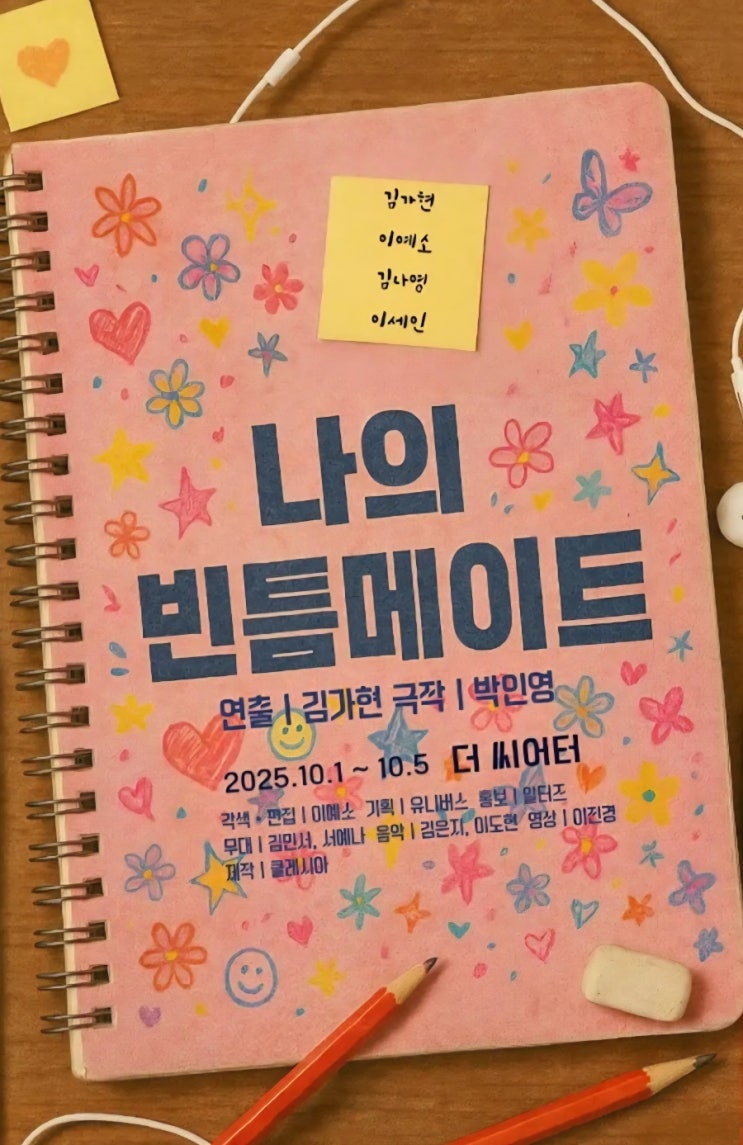 김가현
이예소
김나영
이세인
나의
빈틈메이트
연출 | 김가현 극작 | 박인영
2025.10.1 ~ 10.5 더 씨어터
각색·편집 | 이예소 기획 | 유니버스 홍보 | 일터즈
무대 | 김민서, 서예나 음악 | 김은지, 이도현 영상 | 이진경
제작 | 클레시아